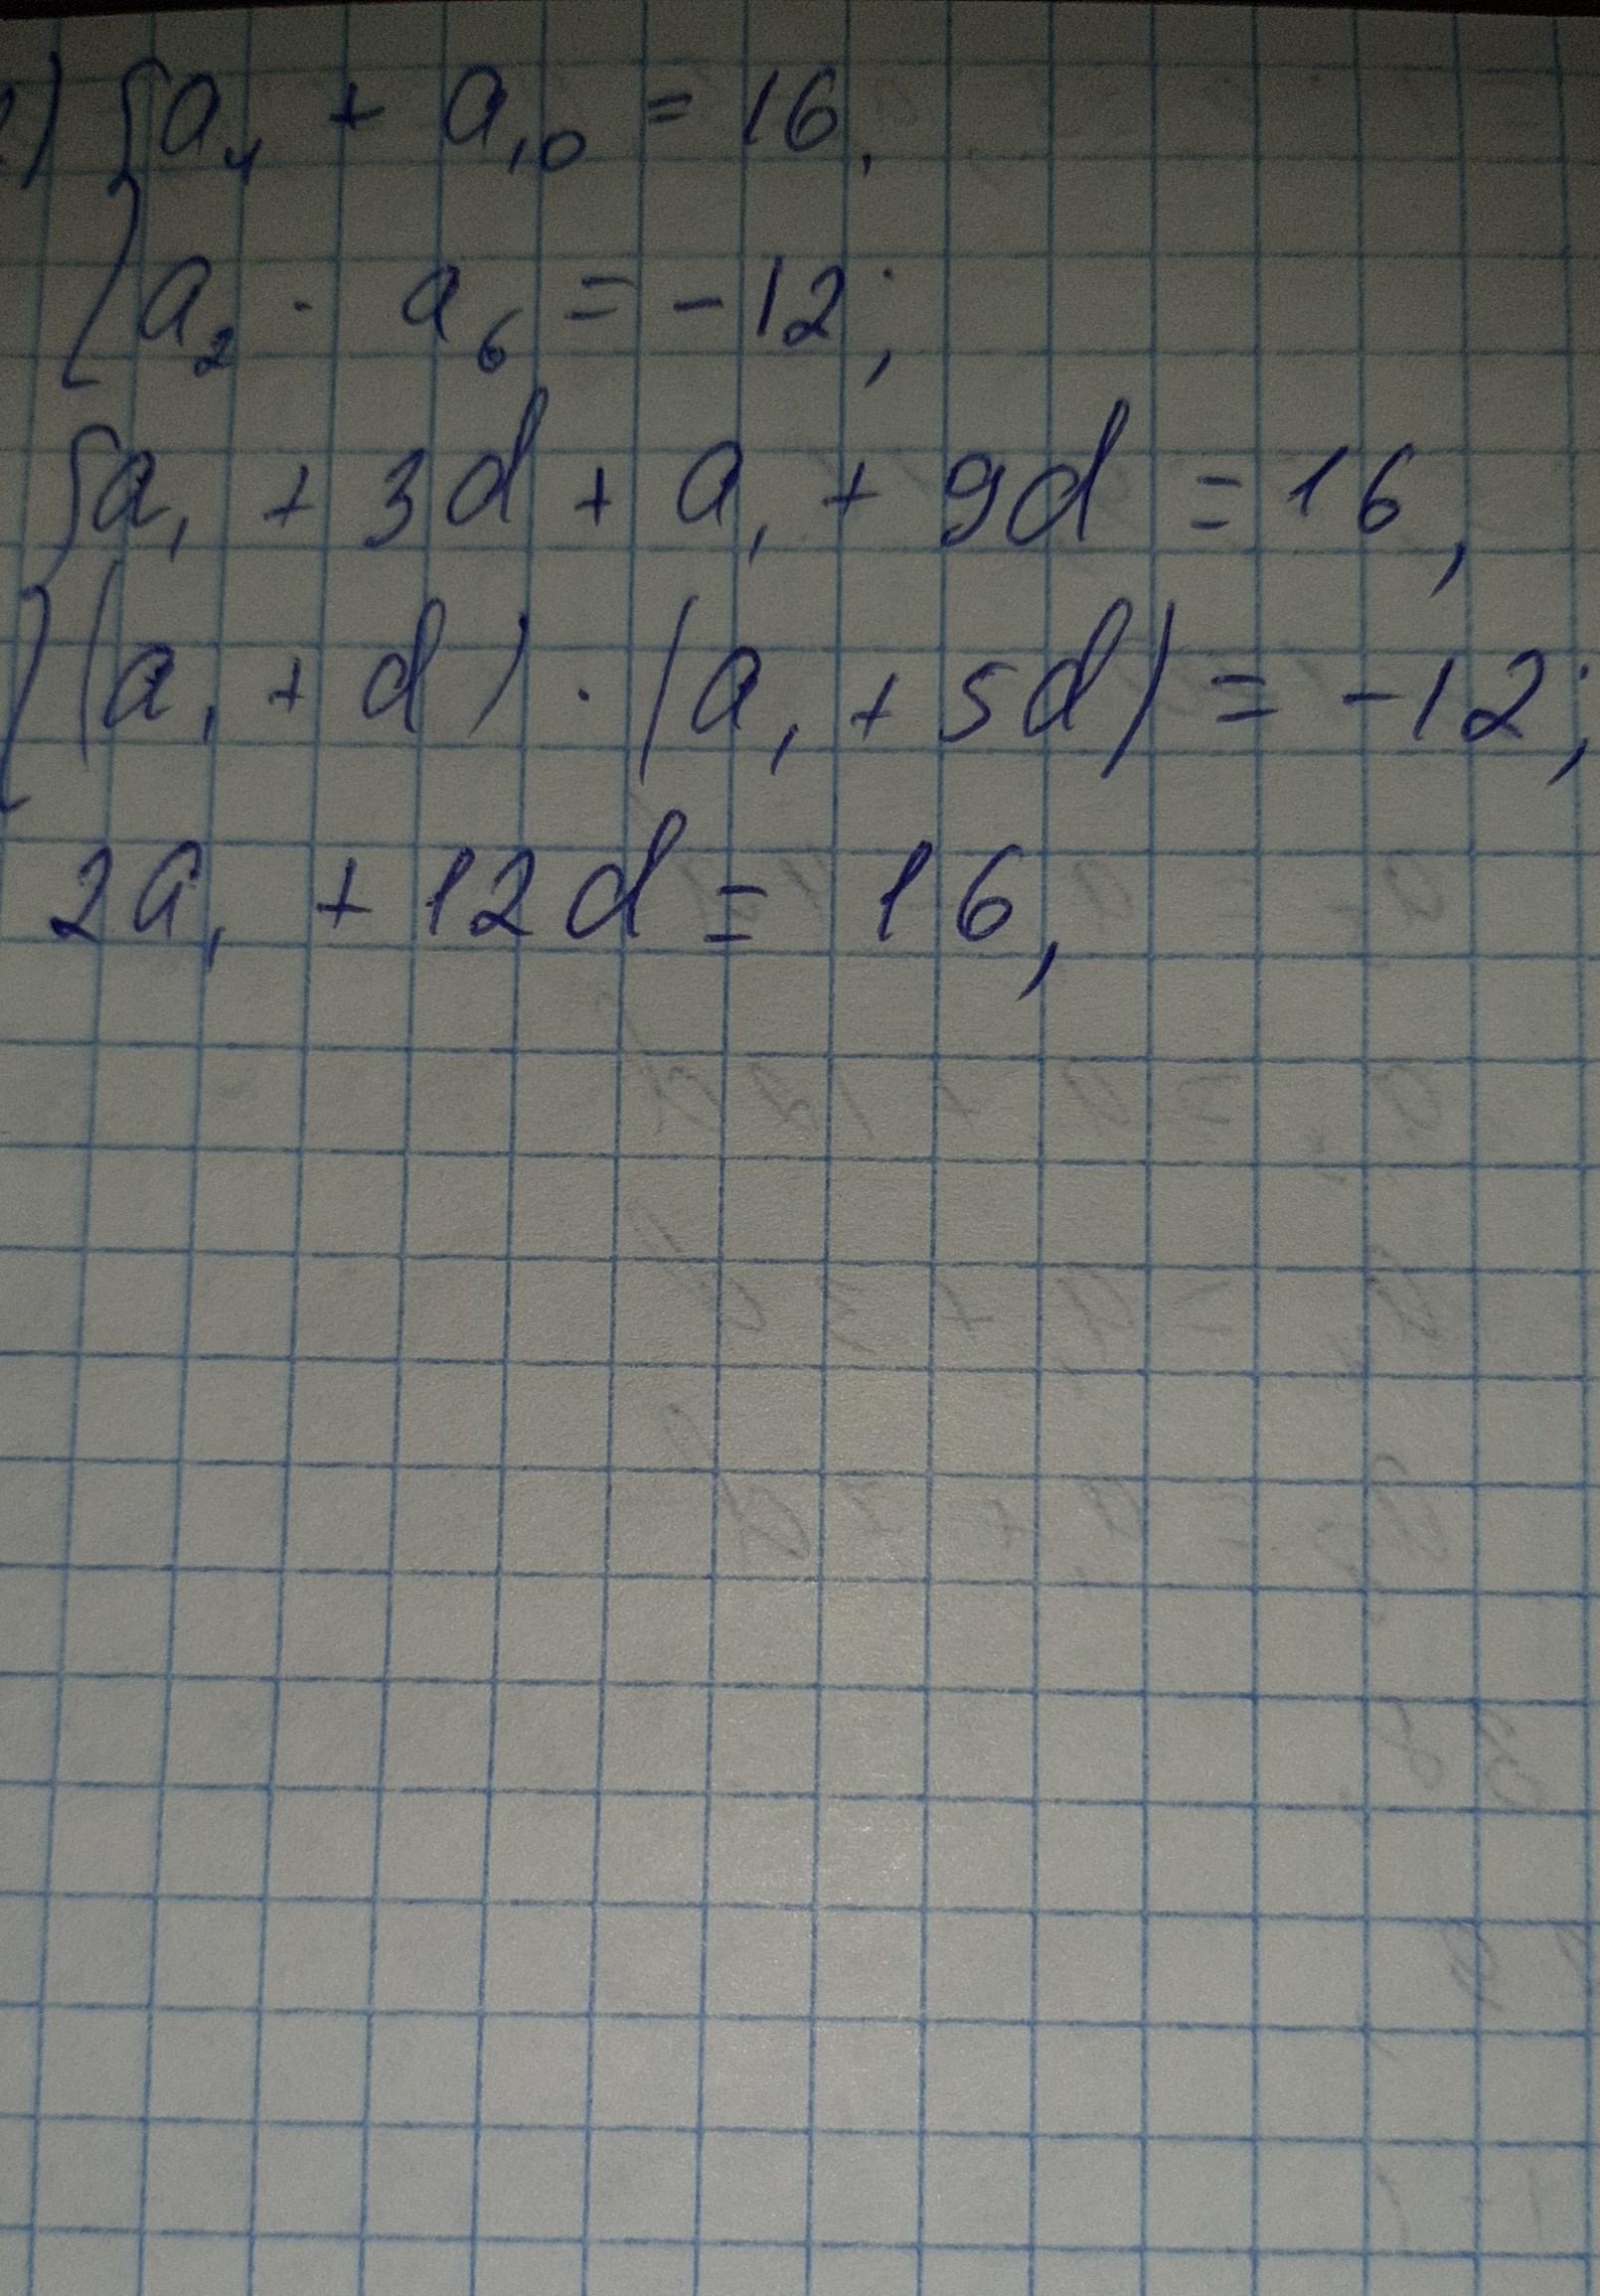 ) { a₄ + a₁₀ = 16,
{ a₂ · a₆ = -12;
{ a₁ + 3d + a₁ + 9d = 16,
{ (a₁ + d) · (a₁ + 5d) = -12;
2a₁ + 12d = 16,